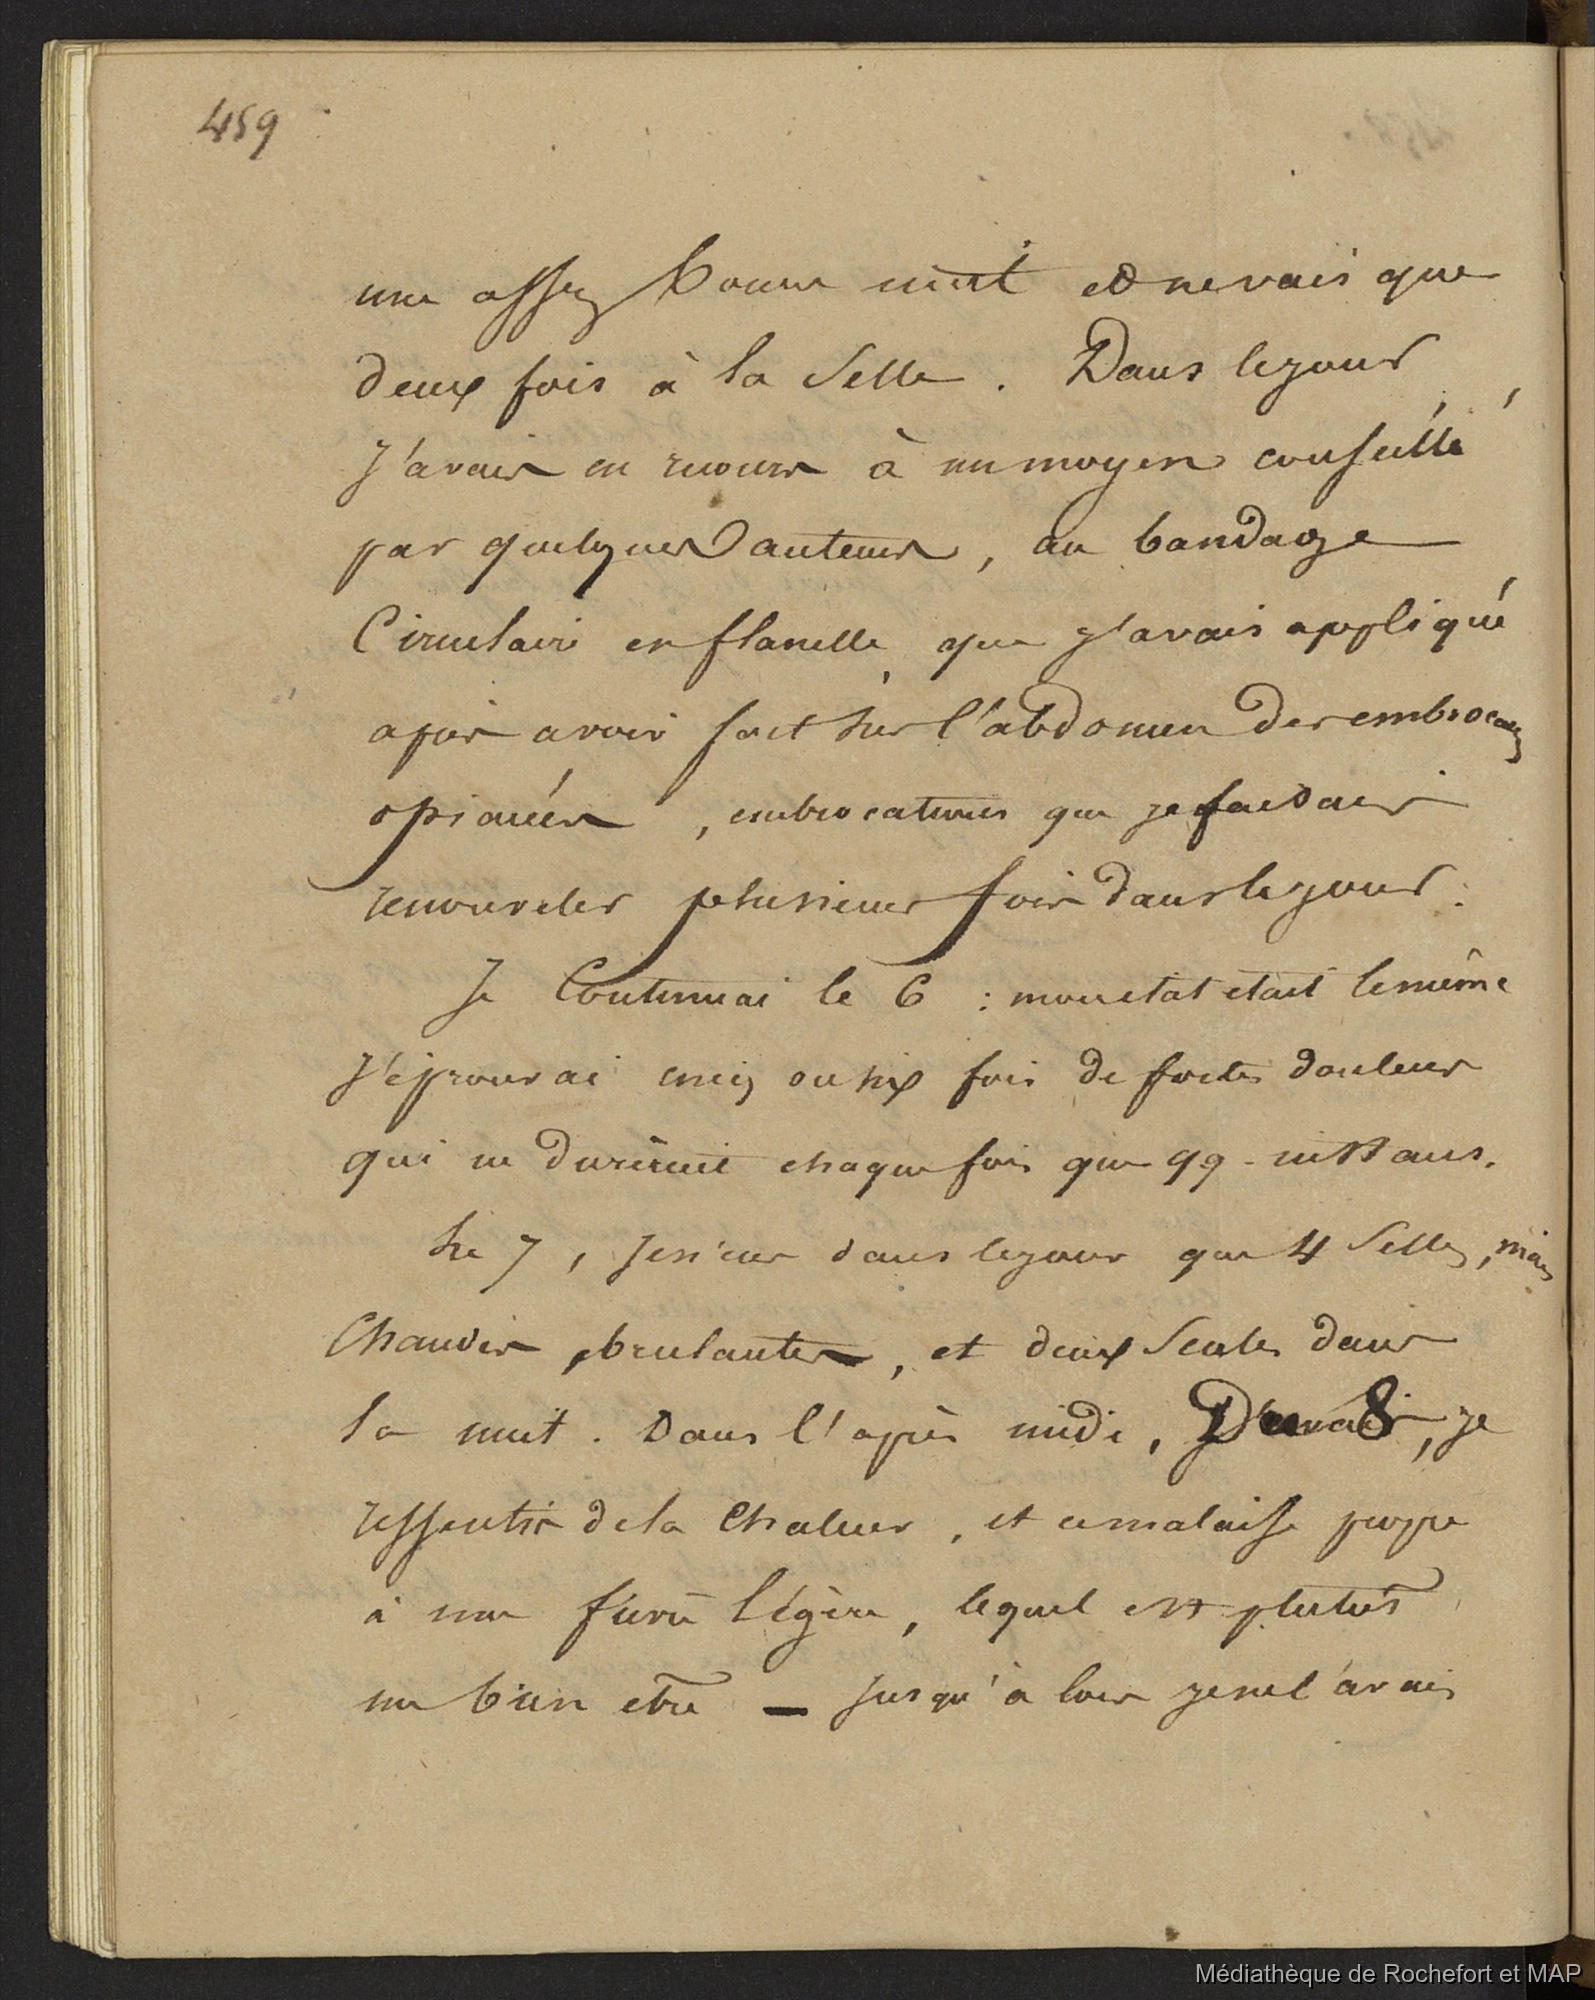 459
une assez bonne nuit et ne vais que
deux fois à la Selle. Dans le jour
J'avais eu recours à un moyen conseillé
par quelques auteurs, au bandage
Circulaire en flanelle, que j'avais appliqué
après avoir fait sur l'abdomen des
opiacées, embrocations que je faisais
renouveler plusieurs fois dans le jour.
Je Continuai le 6 : mon etat était le même
J'éprouvai cinq ou six fois de fortes douleurs
qui ne durèrent chaque fois que qq. instans.
Le 7, Je n'eus dans le jour que 4 Selles, mais
Chaudes, brulantes, et deux Seules dans
la nuit. Dans l'après midi, 8, je
ressentis de la Chaleur, et ce malaise propre
à une fièvre légère, lequel est plutôt
un bien etre — Jusqu'à lors je ne l'avais
Médiathèque de Rochefort et MAP